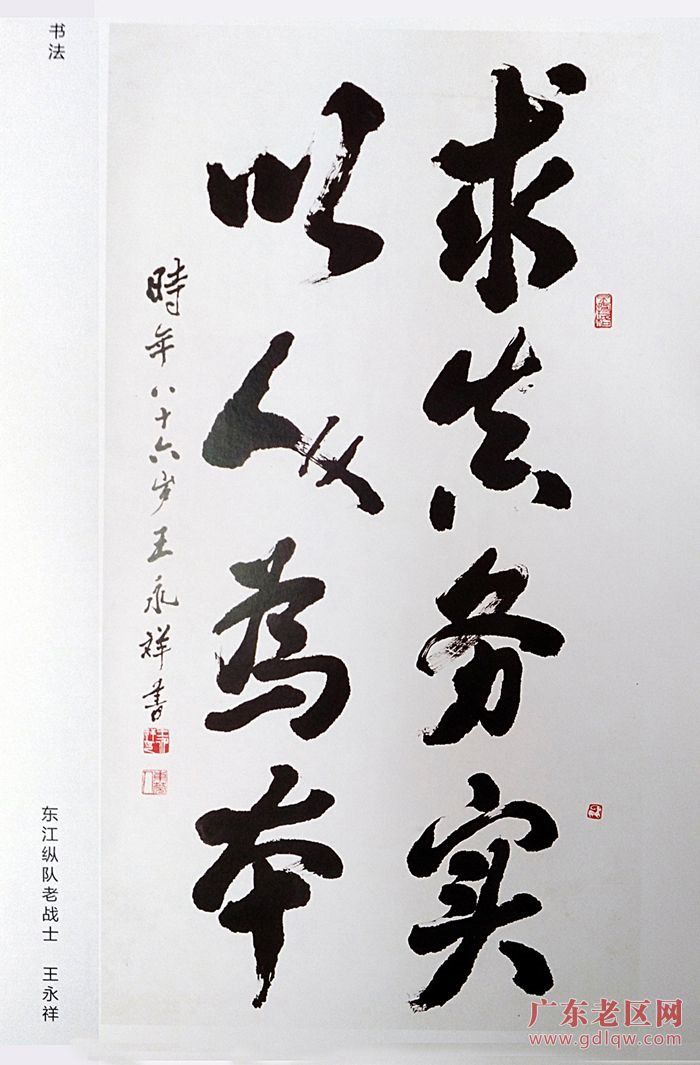 书法
求真务实
以人為本
時年八十六岁王永祥書
东江纵队老战士 王永祥
广东老区网
www.gdlqw.com